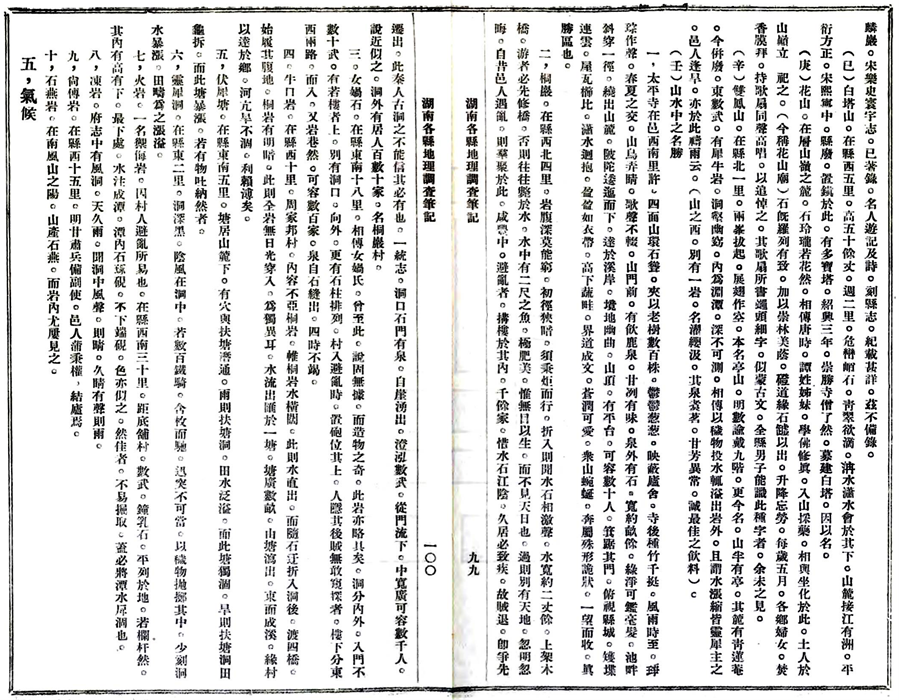 麟嚴。宋樂史寰宇志。已著錄。名人遊記及詩。刻縣志。紀載甚詳。茲不備錄。
(己)白塔山。在縣西五里。高五十餘丈。週二里。危巒峭石。靑翠欲滴。水瀟水會於其下。山麓接江有洲。平
衍方正。宋熙寧中。縣廢。置鎮於此。有多寶塔。紹興三年。崇勝寺僧了然。募建白塔。因以名。
(庚)花山。在層山嶺之麓。石玲瓏若花然。相傳唐時。譚姓姊妹。學佛修眞。入山採藥。相與坐化於此。土人於
山巔立 祀之。(今稱花山廟)石旣羅列有致。加以崇林美蔭。磴道緣石罅以出。升降忘勞。每歲五月。各鄉婦女。焚
香膜拜。持歌扇同聲高唱。以追悼之。其歌扇所書蠅頭細字。似蒙古文。全縣男子能識此種字者。余未之見。
(辛)雙鳳山。在縣北一里。兩峯拔起。展翅作空。本名亭山。明數諭戴九階。更今名。山半有亭。其麓有靑蓮菴
。今俱廢。東數武。有犀牛岩。洞壑幽窈。內爲淵潭。深不可測。相傳以穢物投水輒溢出岩外。且謂水漲縮皆靈犀主之
。邑人逢旱。亦於此禱雨云。(山之西。別有一岩。名濯纓汲。其泉煑茗。甘芳異常。誠最佳之飲料)。
(壬)山水中之名勝
一，太平寺在邑西南里許。四面山環石聳。夾以老樹數百株。鬱鬱葱葱。映蔽廬舍。寺後種竹千挺。風雨時至。琤
琮作聲。春夏之交。山鳥弄晴。歌聲不輟。山門前。有飲鹿泉。甘冽有味。泉外有石。寬約畝餘。綠淨可鑑毫髮。池畔
斜穿一徑。繞出山麓。陂陀逶迤而下。達於溪岸。墖地幽曲。山頂。有平台。可容數十人。箕踞其門。俯視縣城。雉堞
連雲。屋瓦櫛比。瀟水迴抱。盈盈如衣帶。高下蔬畦。界道成文。蒼潤可愛。衆山蜿蜒。奔屬殊形詭狀。一望而收。眞
勝區也。
二，桐嚴。在縣西北四里。岩腹深莫能窮。初徑狹暗。須秉炬而行。折入則聞水石相激聲。水寬約二丈餘。上架木
橋。游者必先修橋。否則往往斃於水。水中有二尺之魚。極肥美。惟無目以生。而不見天日也。過則別有天地。忽明忽
晦。自昔邑人遇亂。則羣聚於此。咸豐中。避亂者。搆樓於其內。千餘家。惜水石江陰。久居必致疾。故賊退。卽爭先
湖南各縣地理調查筆記
九九
湖南各縣地理調查筆記
一〇〇
遷出。此秦人古洞之不能信其必有也。一統志。洞口石門有泉。自崖湧出。澄泓數武。從門流下。中寬廣可容數千人。
說近似之。洞外有居人百數十家。名桐嚴村。
三，女媧石。在縣東南十八里。相傳女媧氏。曾至此。說固無據。而造物之奇。此岩亦略具矣。洞分內外。入門不
數十武。有若樓者上。別有洞口。向外。更有石柱排列。村入避亂時。置砲位其上。人隱其後賊無敢窺探者。樓下分東
西兩路。而入。又岩巷然。可容數百家。泉自石縫出。四時不竭。
四，牛口岩。在縣西十里。周家邦村。內容不亞桐岩。惟桐岩水橫闊。此則水直出。而隨石迂折入洞後。渡四橋。
始屐其腹地。桐岩有明暗。此則全岩無日光穿入。爲獨異耳。水流出匯於一塘。塘廣數畝。山塘瀉出。東面成溪。緣村
以達於鄉。河亢旱不涸。利賴溥矣。
五，伏犀塘。在縣東南五里。塘居山麓下。有穴與扶塘潛通。雨則扶塘洞。田水泛溢。而此塘獨涸。旱則扶塘洞田
龜拆。而此塘暴漲。若有物吐納然者。
六，靈犀洞。在縣東二里。洞澤黑。陰風在洞中。若數百鐵騎。含枚而馳。迅突不可當。以穢物拋擲其中。少刻洞
水暴漲。田疇爲之漲溢。
七，火岩。一名觀海岩。因村人避亂所易也。在縣西南三十里。距底舖村。數武。鐘乳石。平列於地。若欄杆然。
其內有高有下。最下處。水注成潭。潭內石琢硯。不下端硯。色亦似之。然佳者。不易掘取。蓋必將潭水戽涸也。
八，凍岩。府志中有風洞。天久雨。聞洞中風聲。則晴。久晴有聲則雨。
九，尙傅岩。在縣西十五里。明甘肅兵備副使。邑人蒲秉權，結廬焉。
十，石燕岩。在南風山之陽。山產石燕。而岩內尤屢見之。
五，氣候